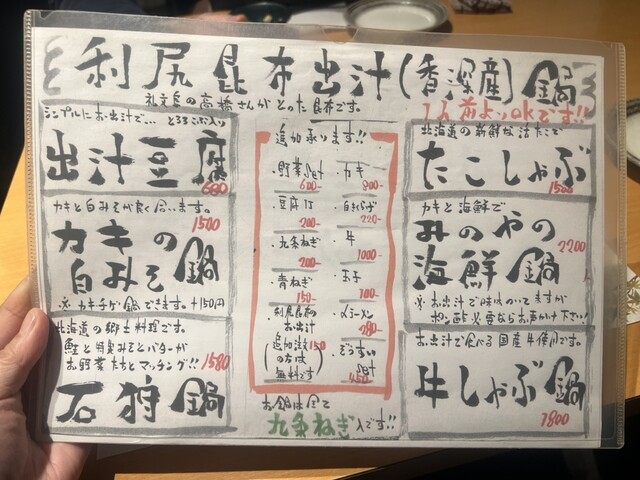 利尻昆布出汁(香深産)鍋
礼文島の高橋さんがとった昆布です。
1人前よりokです!!
シンプルにお出汁で… とろろこぶ入り
出汁豆腐
680
カキと白みそが良く合います。
1500
カキの
白みそ鍋
※カキチゲ鍋できます。+150円
北海道の郷土料理です。
鮭と特製みそとバターが
お野菜たちとマッチング!! 1580
石狩鍋
追加承ります!!
・野菜set 600-
・カキ 800-
・豆腐1丁 200-
・白きくらげ 220-
・九条ねぎ 200-
・牛 1000-
・青ねぎ 150-
・玉子 100-
・利尻昆布の
お出汁
追加 150
の方は
無料です
・〆ラーメン 280-
・ぞうすい
set 450-
お鍋は全て
九条ねぎ入です!!
北海道の新鮮な活たこで
たこしゃぶ
1500
カキと海鮮で
みのやの
2200
海鮮鍋
※お出汁で味がついてますが
ポン酢必要ならお声がけ下さい!
お出汁で食べる国産牛使用です。
牛しゃぶ鍋
1800